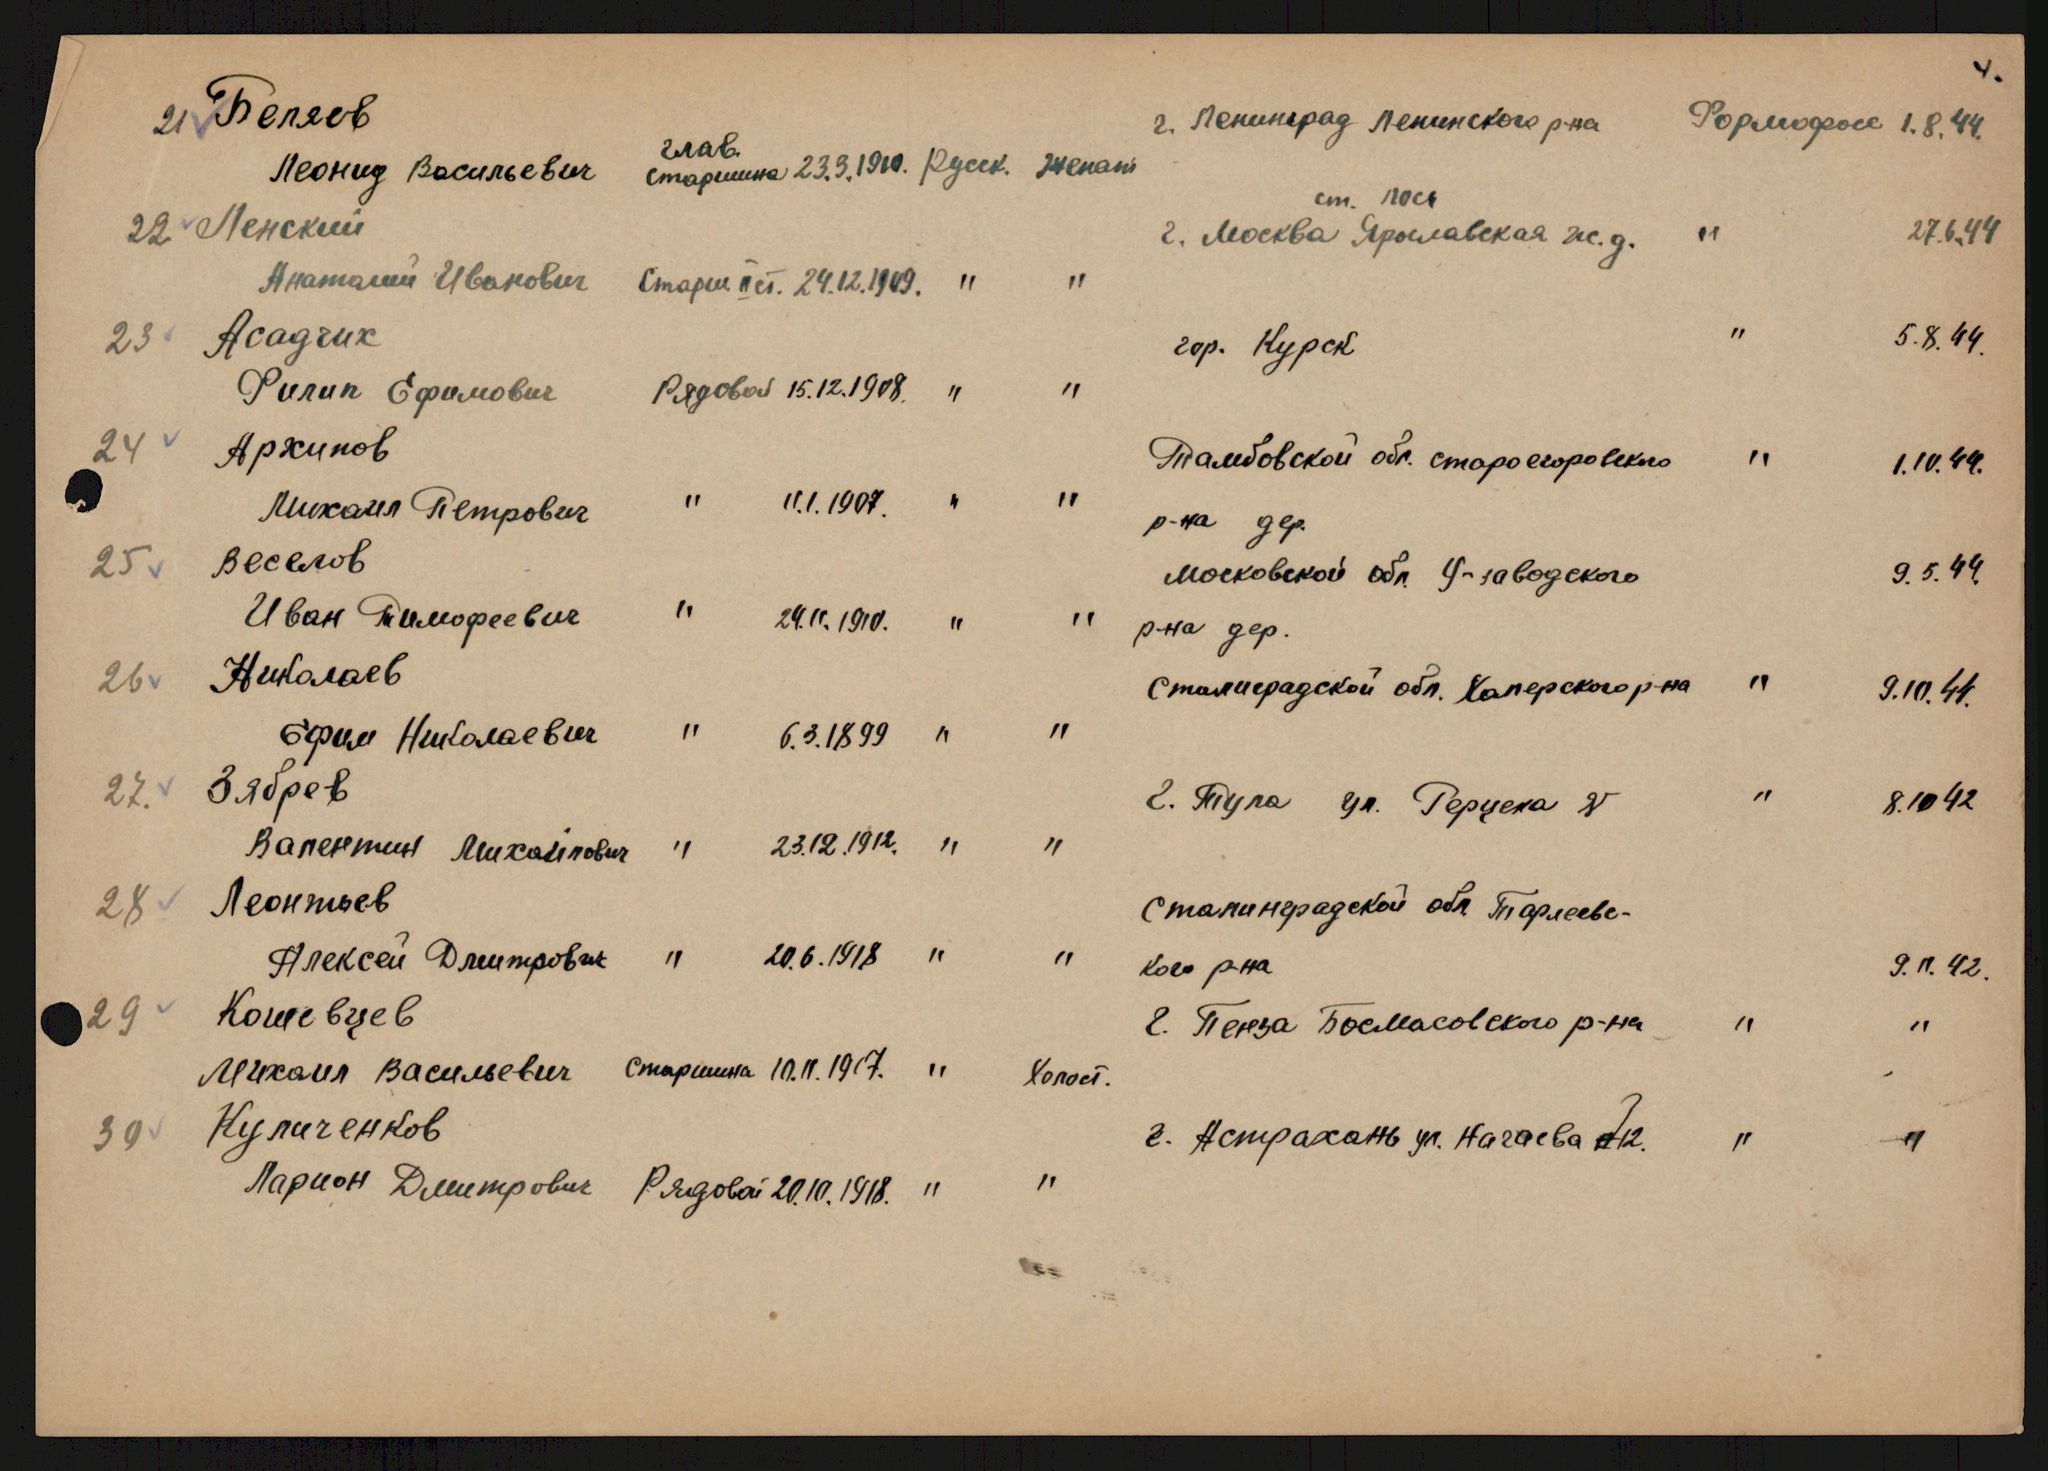 4.
21 Беляев г. Ленинград Ленинского р-на 1.8.44.
Леонид Васильевич глав. старшина 23.3.1910. Русск. Женат
ст. Лось
22 Ленский г. Москва Ярославская ж.д. " 27.6.44
Анатолий Иванович Старш. II ст. 24.12.1909. " "
23 Асадчих гор. Курск " 5.8.44.
Филип Ефимович Рядовой 15.12.1908. " "
24 Архипов Тамбовской обл. староегоровского " 1.10.44.
Михаил Петрович " 11.1.1907. " " р-на дер.
25 Веселов Московской обл. У-заводского 9.5.44.
Иван Тимофеевич " 24.11.1910. " " р-на дер.
26 Николаев Сталиградской обл. Хоперского р-на " 9.10.44.
Ефим Николаевич " 6.3.1899 " "
27. Зябрев г. Тула ул. Герцена " 8.10 42
Валентин Михайлович " 23.12.1912. " "
28 Леонтьев Сталинградской обл.
Алексей Дмитрович " 20.6.1918 " " кого р-на 9.11.42.
29 Кошевцев г. Пенза р-на " "
Михаил Васильевич Старшина 10.11.1917. " Холост.
30 Куличенков г. Астрахань ул. Нагаева 12. " "
Ларион Дмитрович Рядовой 20.10.1918. " "